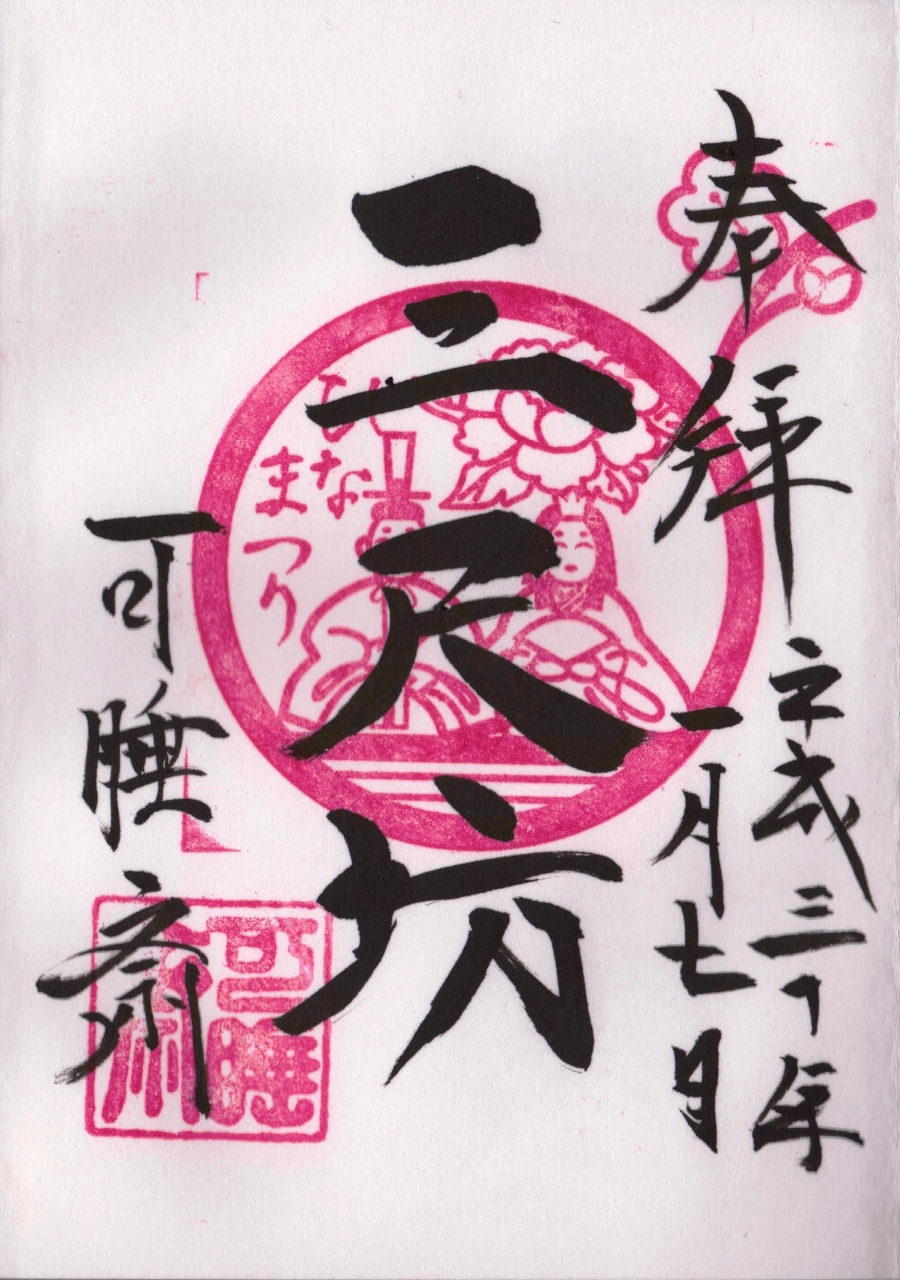 奉拝
平成三十年
一月七日
三尺坊
可睡斎
ひなまつり
可睡斎